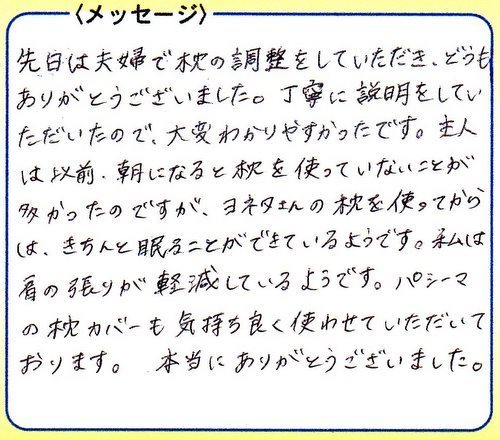 〈メッセージ〉
先日は夫婦で枕の調整をしていただき、どうも
ありがとうございました。丁寧に説明をしてい
ただいたので、大変わかりやすかったです。主人
は以前、朝になると枕を使っていないことが
多かったのですが、ヨネタさんの枕を使ってから
は、きちんと眠ることができているようです。私は
肩の張りが軽減しているようです。パシーマ
の枕カバーも気持ち良く使わせていただいて
おります。 本当にありがとうございました。